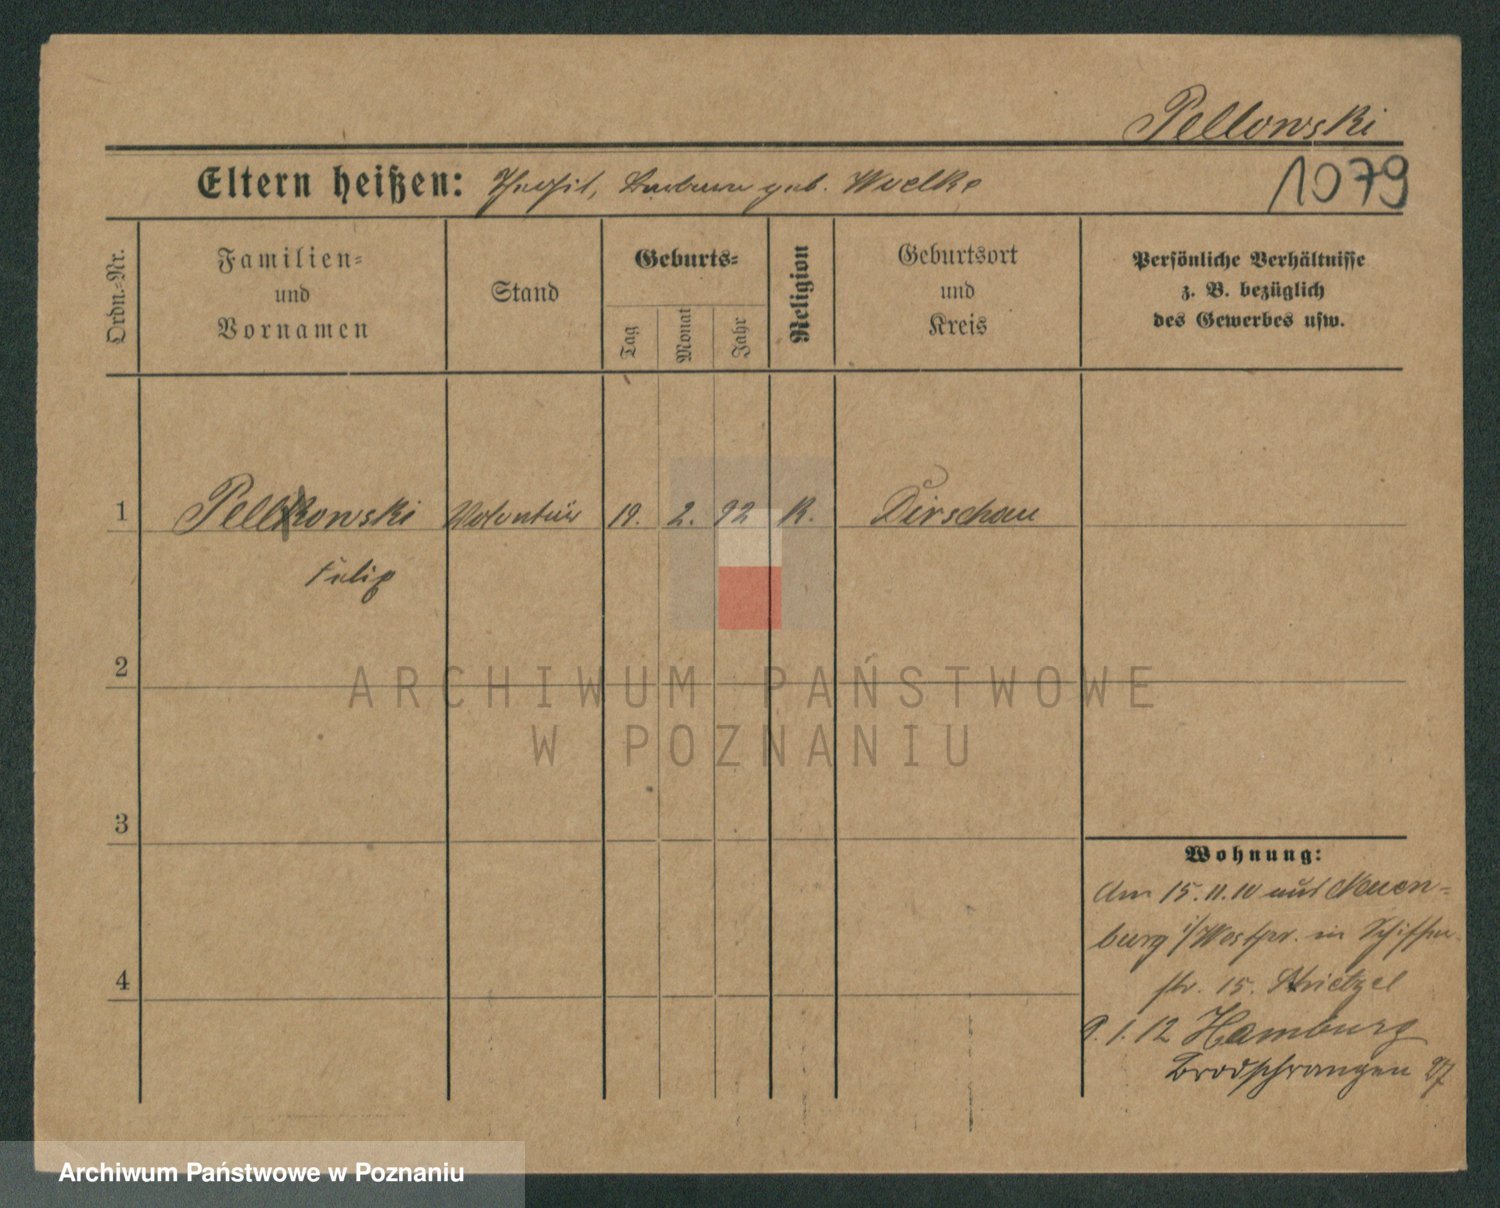 Pellowski
1079
Eltern heißen: geb. Woelke
Ordn.-Nr.
Familien-
und
Vornamen
Stand
Geburts-
Tag
Monat
Jahr
Religion
Geburtsort
und
Kreis
Persönliche Verhältnisse
z. B. bezüglich
des Gewerbes usw.
1 Pellkowski Volontär 19. 2. 92 K. Dirschau
Felix
2
ARCHIWUM PAŃSTWOWE
W POZNANIU
3
Wohnung:
Am 15.11.10 aus Neuen-
burg i/Westpr. in Schiffer-
str. 15. Strietzel
4
9.1.12 Hamburg
Brodschrangen 27
Archiwum Państwowe w Poznaniu